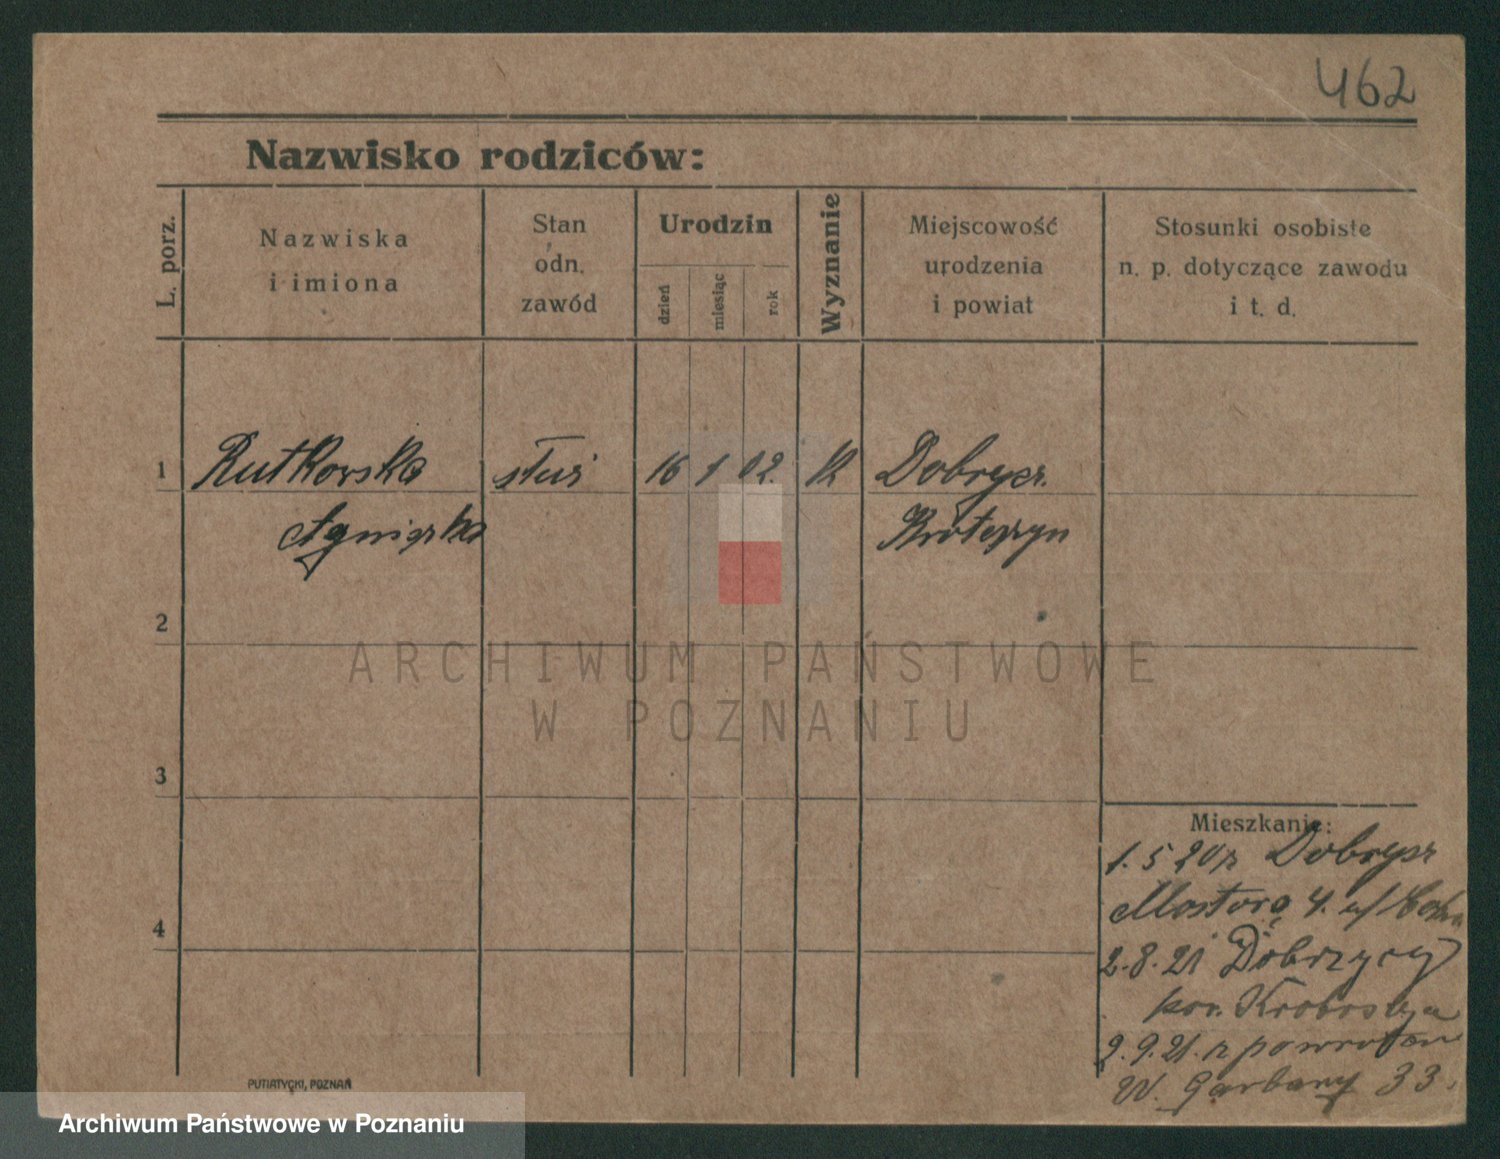 462
Nazwisko rodziców:
L. porz.
Nazwiska
i imiona
Stan
odn.
zawód
Urodzin
dzień
miesiąc
rok
Wyznanie
Miejscowość
urodzenia
i powiat
Stosunki osobiste
n. p. dotyczące zawodu
i t. d.
1 Rutkowska służ 16 1 02. K Dobrzyc.
Agnieszka Krotoszyn
2
3
4
Mieszkanie:
1. 5 20 z Dobrzyc
Mostowa 4.
2.8.21 Dobrzycy
pow.
2.9.21. z powrotem
W. Garbary 33.
PUTIATYCKI, POZNAŃ
ARCHIWUM PAŃSTWOWE
W POZNANIU
Archiwum Państwowe w Poznaniu